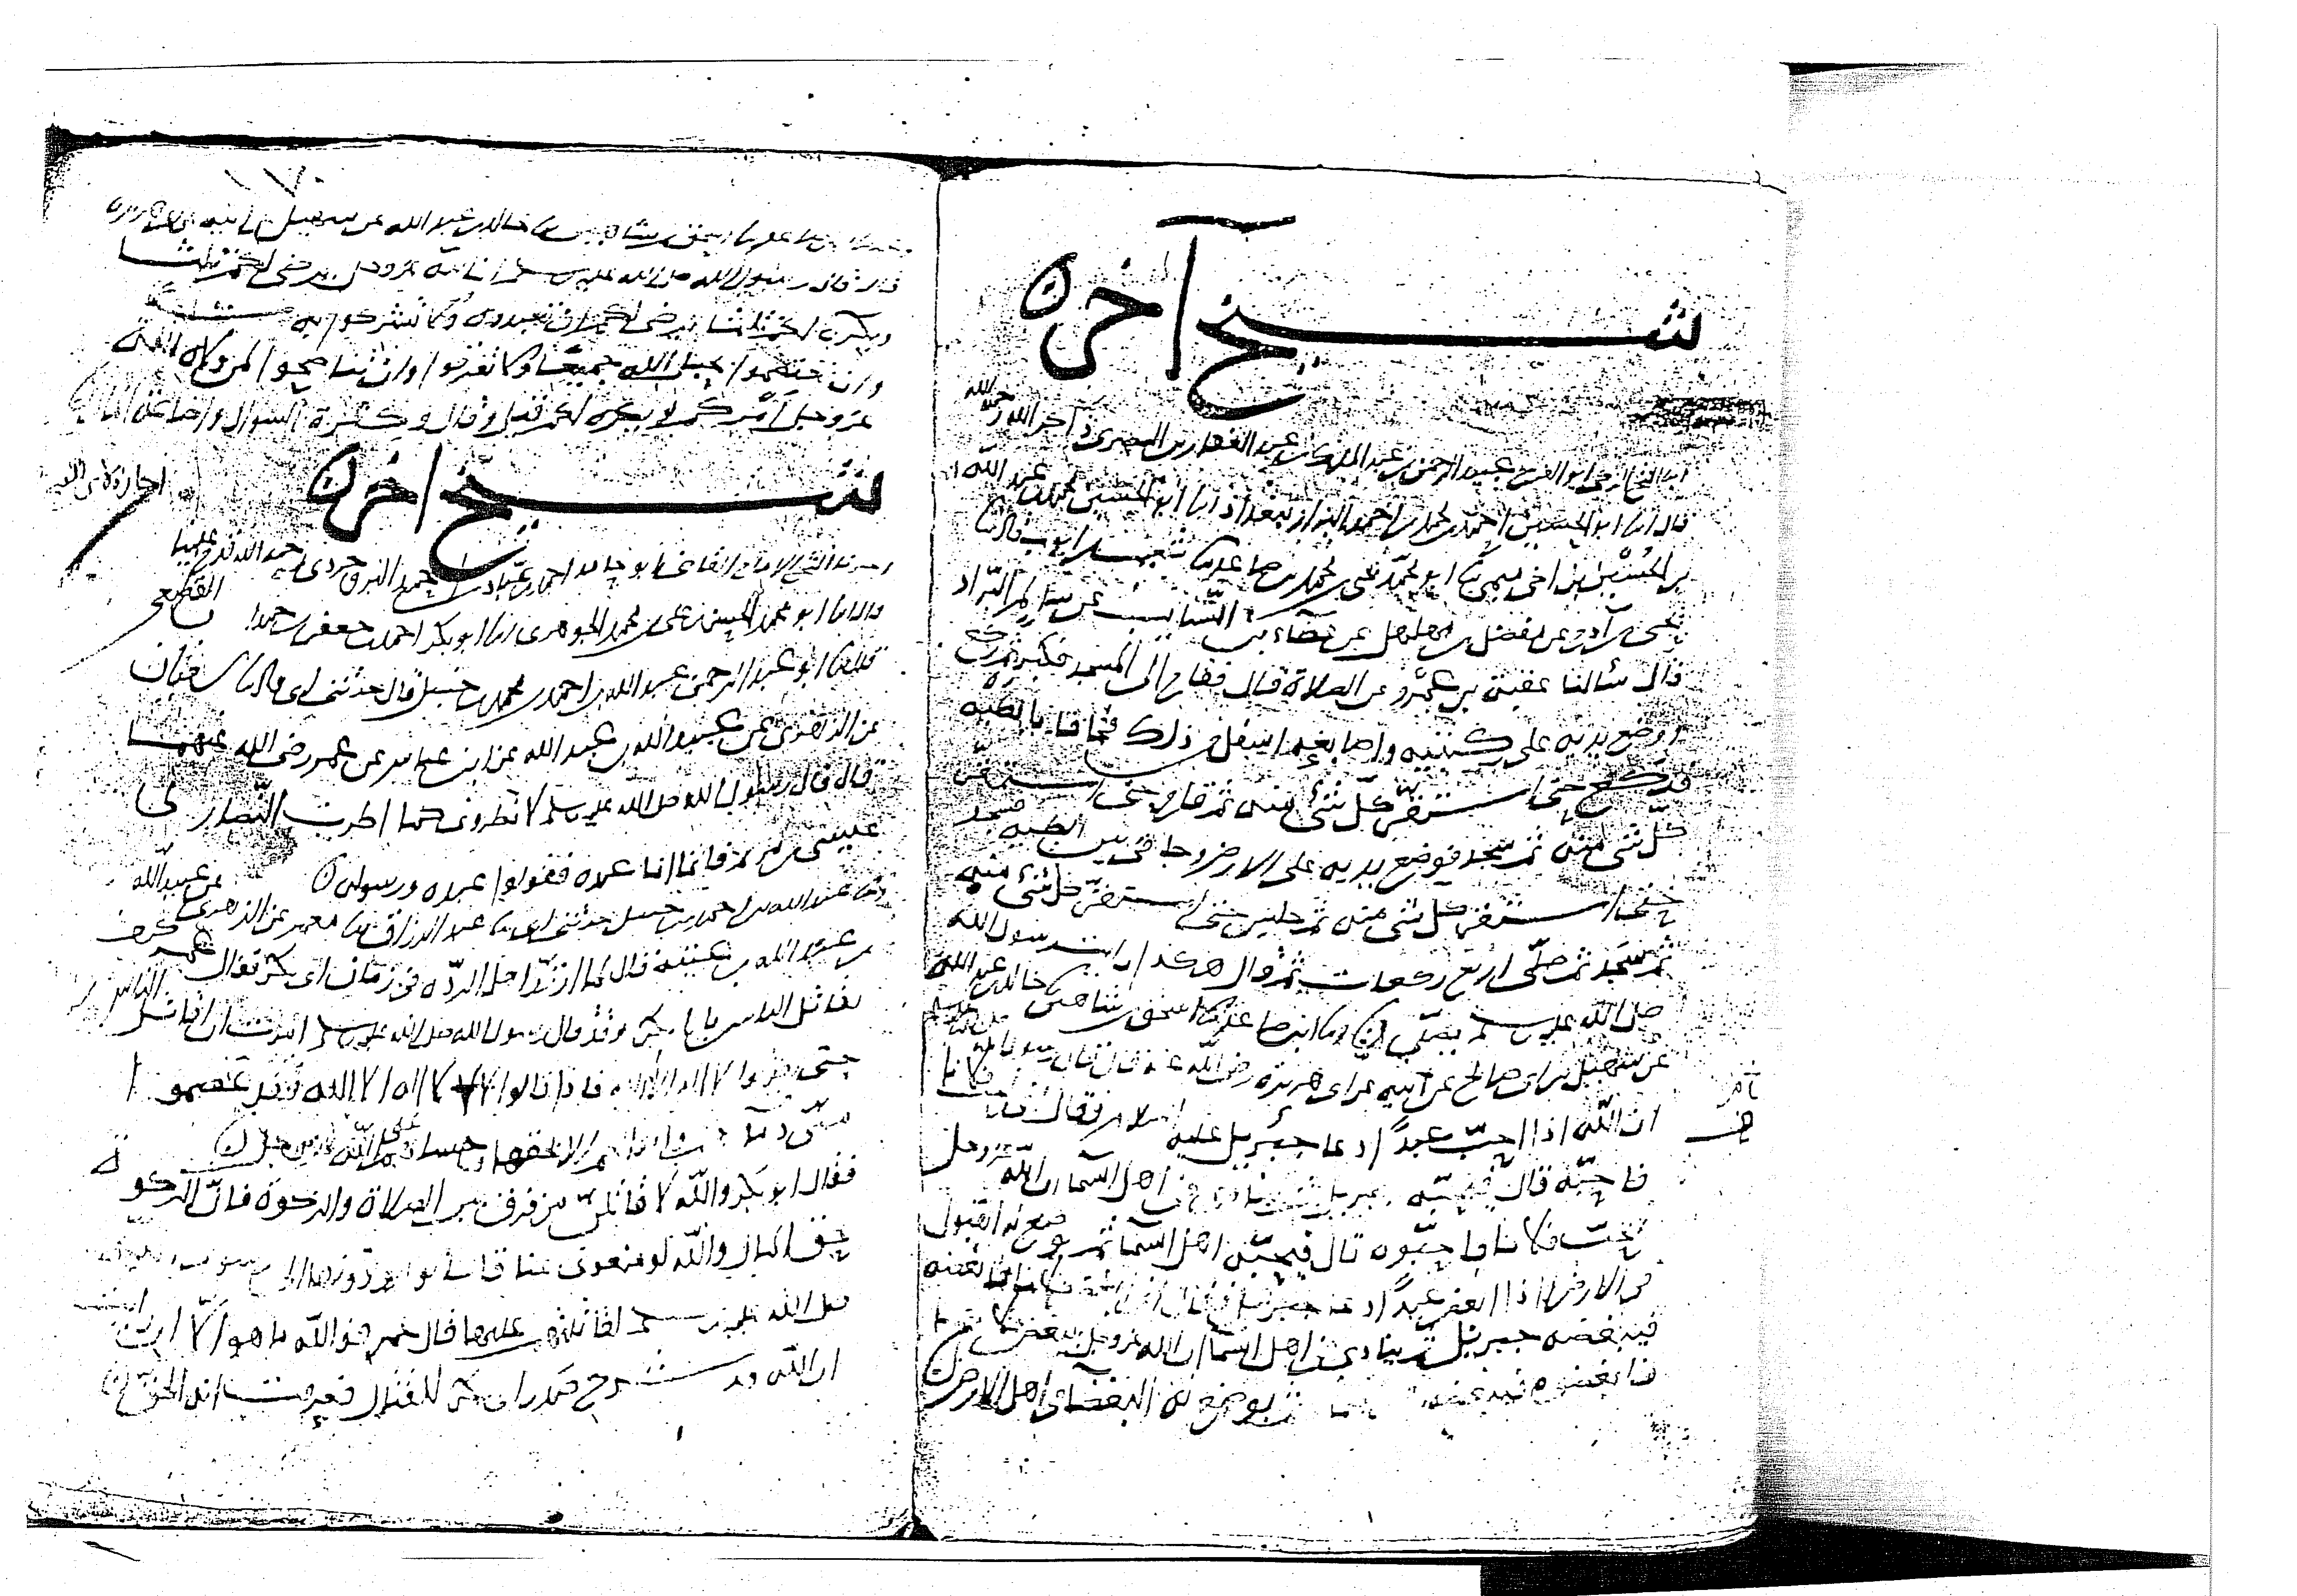 شيخ آخر
انا الشيخ ابو الفرج عبد الرحمن بن عبد الملك بن عبد الغفار البصري آخر الله رحمه الله
قال انا ابو الحسين احمد بن محمد بن احمد البزاز ببغداد انا ابو الحسين محمد بن عبد الله
بن الحسين بن اخي ميمي نا ابو محمد يحيى بن محمد بن صاعد نا شعيب بن ايوب قال نا
يحيى بن آدم عن مفضل بن مهلهل عن عطاء بن السائب عن سالم البراد
قال سألنا عقبة بن عمرو عن الصلاة قال فقام الى المسجد فكبر ثم ركع
ووضع يديه على ركبتيه واصابعه اسفل من ذلك فجافا بابطيه
فركع حتى استقر كل شئ منه ثم قام حتى استقر
كل شئ منه ثم سجد فوضع يديه على الارض وجافى بين ابطيه
حتى استقر كل شئ منه ثم جلس حتى استقر كل شئ منه
ثم سجد ثم صلى اربع ركعات ثم قال هكذا رايت رسول الله
صلى الله عليه وسلم يصلي ونا ابن صاعد نا اسحق بن شاهين نا خالد بن عبد الله
عن سهيل بن ابي صالح عن ابيه عن ابي هريرة رضي الله عنه قال قال رسول الله صلى الله عليه
ان الله اذا احب عبدا دعا جبريل عليه السلام فقال فلانا
فاحبه قال فيحبه جبريل ثم ينادي في اهل السماء ان الله عز وجل
يحب فلانا فاحبوه قال فيحبه اهل السماء ثم يوضع له القبول
في الارض اذا ابغض عبدا دعا جبريل فابغضه
فيبغضه جبريل ثم ينادي في اهل السماء ان الله عز وجل يبغض فلانا
فابغضوه ثم يوضع له البغضاء في اهل الارض
١٧٠
صاعد نا اسحق بن شاهين نا خالد بن عبد الله عن سهيل عن ابيه عن ابي هريرة
قال قال رسول الله صلى الله عليه وسلم ان الله عز وجل يرضى لكم ثلثا
ويكره لكم ثلثا يرضى لكم ان تعبدوه ولا تشركوا به شيئا
وان تعتصموا بحبل الله جميعا ولا تفرقوا وان تناصحوا لمن ولاه الله
عز وجل امركم ويكره لكم قيل وقال وكثرة السوال واضاعة المال
شيخ اخر
اخبرنا الشيخ الامام القاضي ابو حامد احمد بن احمد البروجردي رحمه الله قدم علينا
قال انا ابو محمد الحسن بن علي بن محمد الجوهري انا ابو بكر احمد بن جعفر بن حمدان القطيعي
قال نا ابو عبد الرحمن عبد الله بن احمد بن محمد بن حنبل قال حدثني ابي قال نا سفيان
عن الزهري عن عبيد الله بن عبد الله عن ابن عباس عن عمر رضي الله عنهما
قال قال رسول الله صلى الله عليه وسلم لا تطروني كما اطرت النصارى
عيسى بن مريم فانما انا عبده فقولوا عبده ورسوله
ونا عبد الله بن احمد بن حنبل حدثني ابي نا عبد الرزاق نا معمر عن الزهري عن عبيد الله
بن عبد الله بن عتبة قال لما ارتد اهل الردة في زمان ابي بكر فقال عمر كيف
تقاتل الناس يا با بكر وقد قال رسول الله صلى الله عليه وسلم امرت ان اقاتل الناس
حتى يقولوا لا اله الا الله فاذا قالوا لا اله الا الله فقد عصموا
مني دماءهم واموالهم الا بحقها وحسابهم على الله عز وجل
فقال ابو بكر والله لاقاتلن من فرق بين الصلاة والزكوة فان الزكوة
حق المال والله لو منعوني عناقا كانوا يؤدونها الى
صلى الله عليه وسلم لقاتلتهم عليها قال عمر فوالله ما هو الا ان رايت
ان الله قد شرح صدر ابي بكر للقتال فعرفت انه الحق